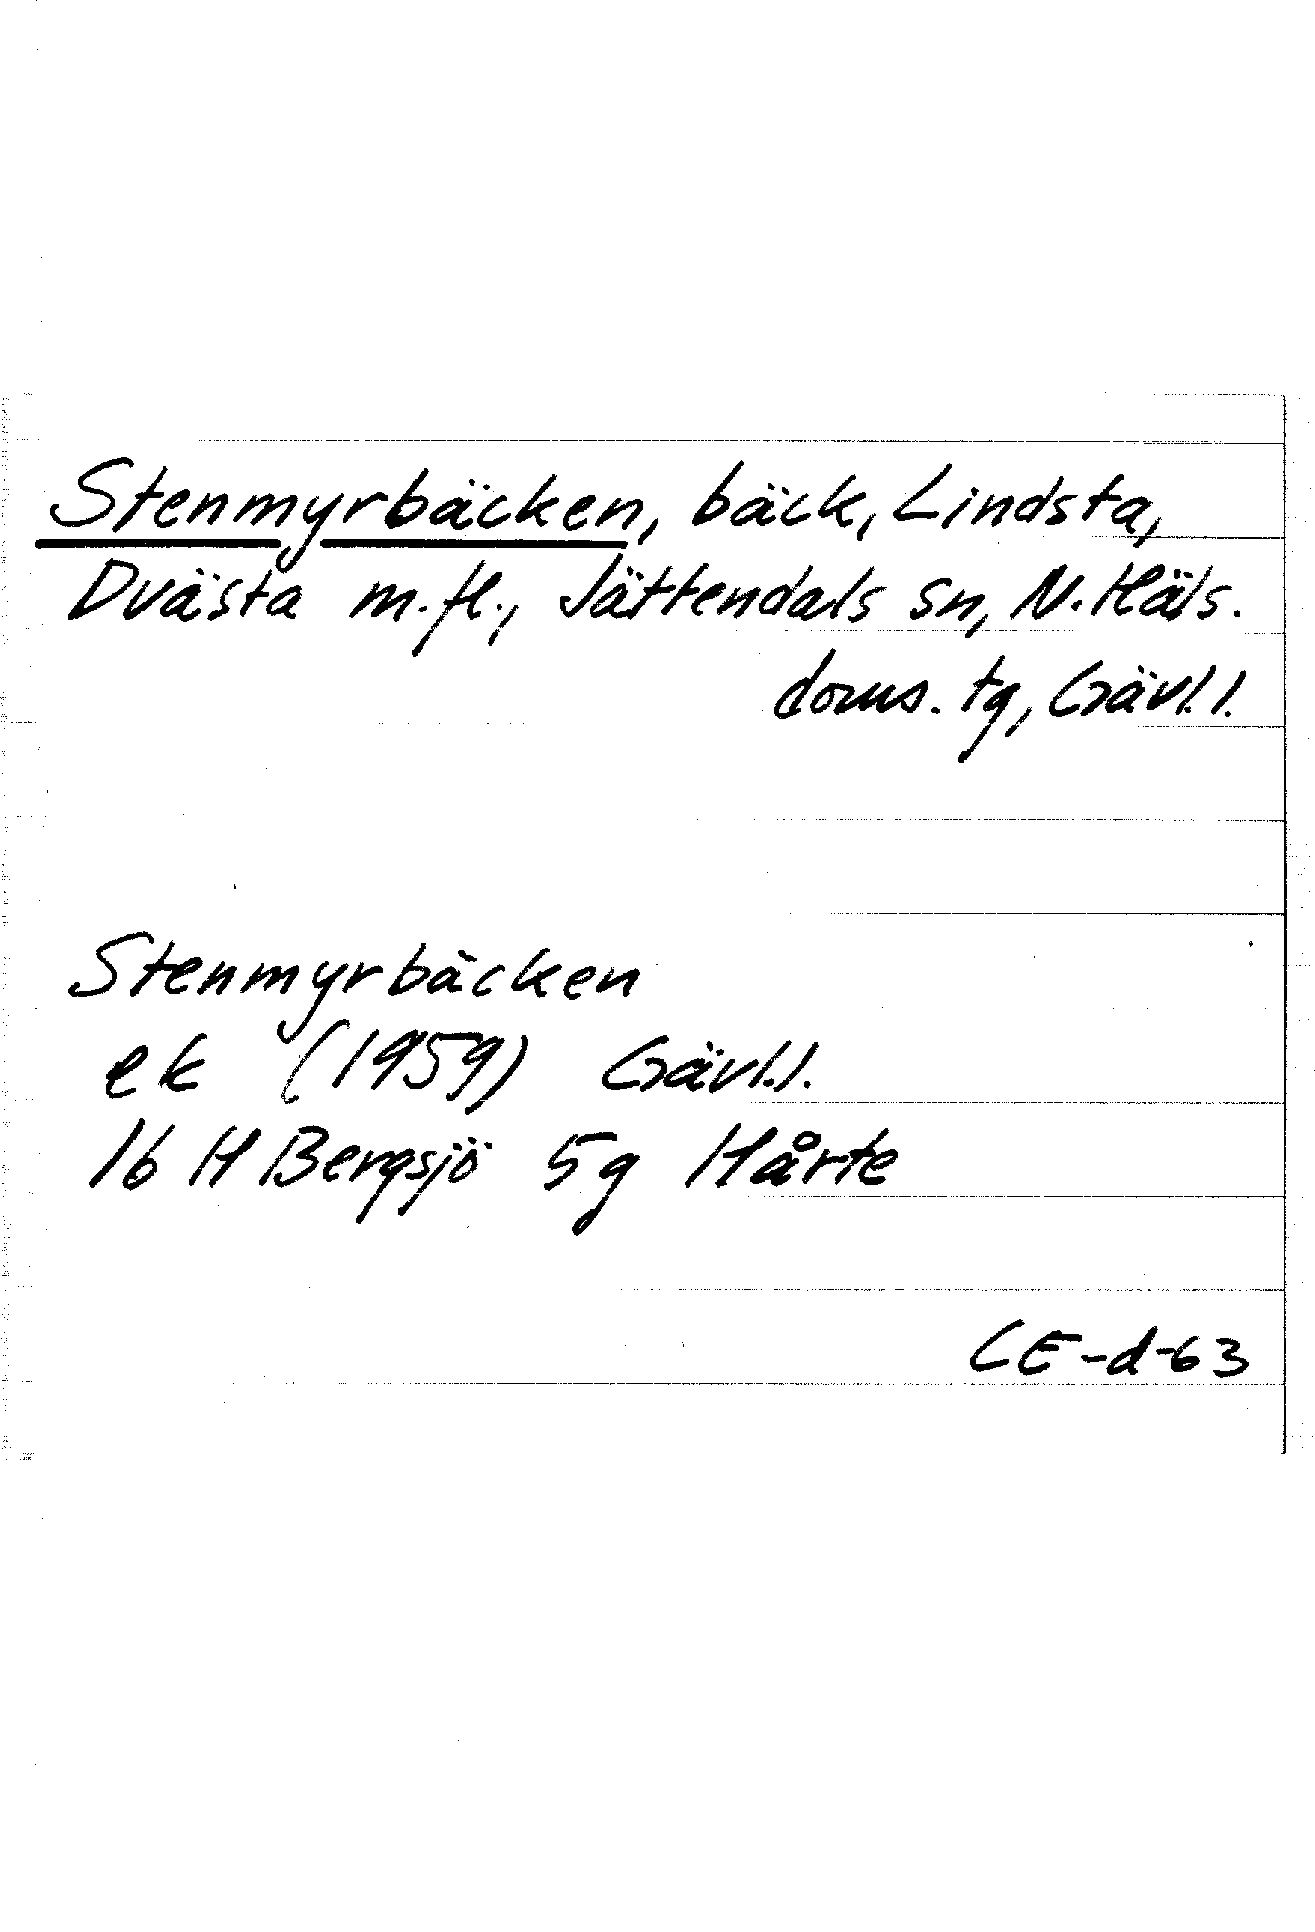 Stenmyrbäcken, bäck, Lindsta,
Dvästa m.fl., Jättendals sn, N. Häls.
doms. tg, Gävl.l.
Stenmyrbäcken
ek (1959) Gävl.l.
16 H Bergsjö 5g Hårte
CE-d-63